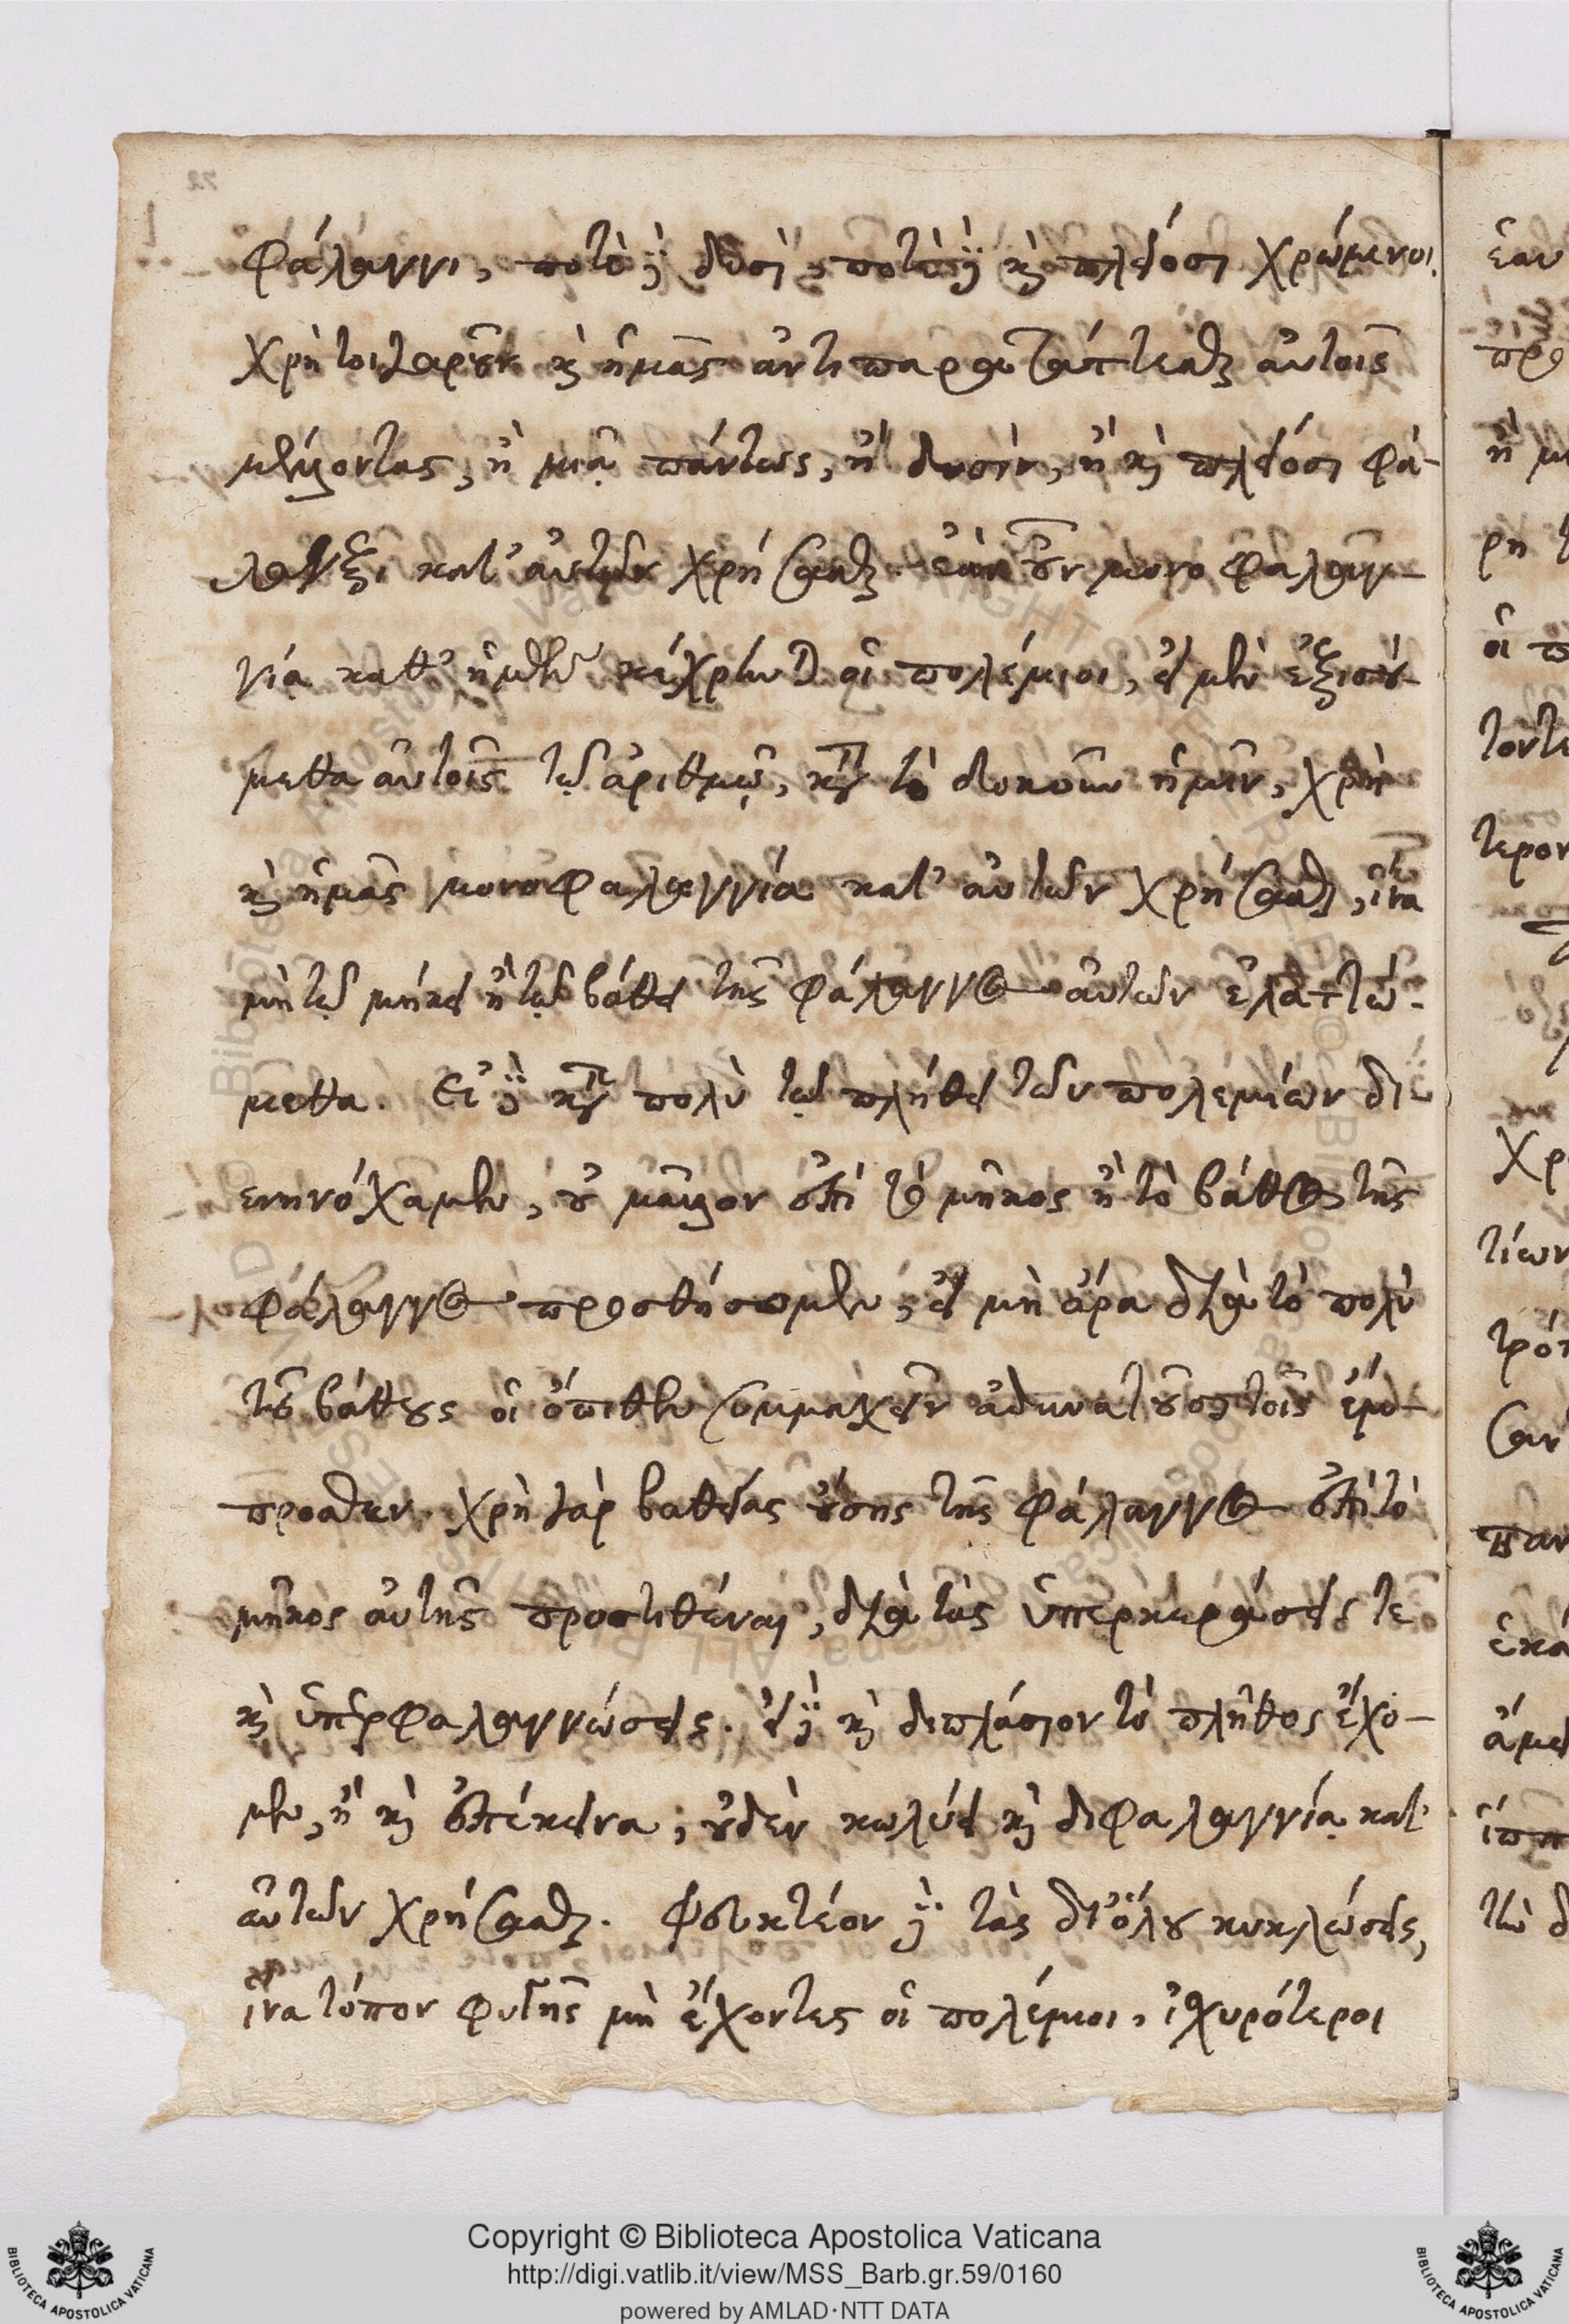 φάλαγγι, ποτὲ δὲ δυσὶ, ποτὲ δὲ καὶ πλείοσι χρώμενοι.
χρὴ τοιγαροῦν καὶ ἡμᾶς ἀντιπαρατάττεσθαι αὐτοῖς
μέλλοντας, ἢ μιᾷ πάντως, ἢ δυσὶν, ἢ καὶ πλείοσι φά-
λαγξι κατ' αὐτῶν χρήσασθαι. ἐὰν οὖν μονοφαλαγ-
γίᾳ καθ' ἡμῶν κέχρηνται οἱ πολέμιοι, εἰ μὲν ἐξισού-
μεθα αὐτοῖς τῷ ἀριθμῷ, κατὰ τὸ δοκοῦν ἡμῖν, χρὴ
καὶ ἡμᾶς μονοφαλαγγίᾳ κατ' αὐτῶν χρήσασθαι, ἵνα
μὴ τῷ μήκει ἢ τῷ βάθει τῆς φάλαγγος αὐτῶν ἐλαττώ-
μεθα. Εἰ δὲ κατὰ πολὺ τῷ πλήθει τῶν πολεμίων δι
ενηνόχαμεν, οὐ μᾶλλον ἐπὶ τὸ μῆκος ἢ τὸ βάθος τῆς
φάλαγγος προσθήσομεν, εἰ μὴ ἄρα διὰ τὸ πολὺ
τοῦ βάθους οἱ ὄπιθεν συμμαχεῖν ἀδυνατοῦσι τοῖς ἔμ-
προσθεν. χρὴ γὰρ βαθείας οὔσης τῆς φάλαγγος ἐπὶ τὸ
μῆκος αὐτῆς προστιθέναι, διὰ τὰς ὑπερκεράσεις τε
καὶ ὑπερφαλαγγώσεις. εἰ δὲ καὶ διπλάσιον τὸ πλῆθος ἔχο-
μεν, ἢ καὶ ἐπέκεινα; οὐδὲν κωλύει καὶ διφαλαγγίᾳ κατ'
αὐτῶν χρήσασθαι. φευκτέον δὲ τὰς δι' ὅλου κυκλώσεις,
ἵνα τόπον φυγῆς μὴ ἔχοντες οἱ πολέμιοι, ἰσχυρότεροι
Copyright © Biblioteca Apostolica Vaticana
http://digi.vatlib.it/view/MSS_Barb.gr.59/0160
powered by AMLAD·NTT DATA
BIBLIOTECA APOSTOLICA VATICANA
BIBLIOTECA APOSTOLICA VATICANA